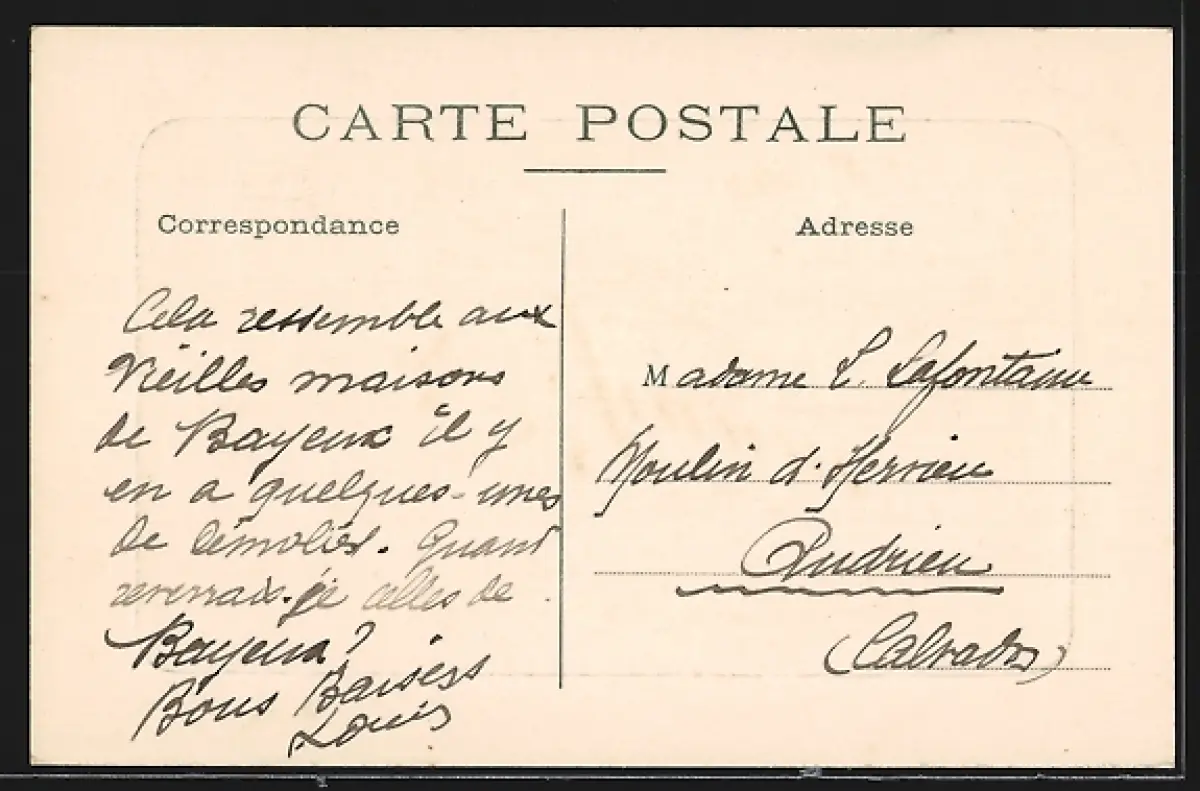 CARTE POSTALE
Correspondance
Adresse
Cela ressemble aux
Vieilles maisons
de Bayeux il y
en a quelques-unes
de démolies. Quand
reverrais-je celles de
Bayeux?
Bons Baisers
Louis
Madame L. Lafontaine
Moulin d'
Audrieu
(Calvados)